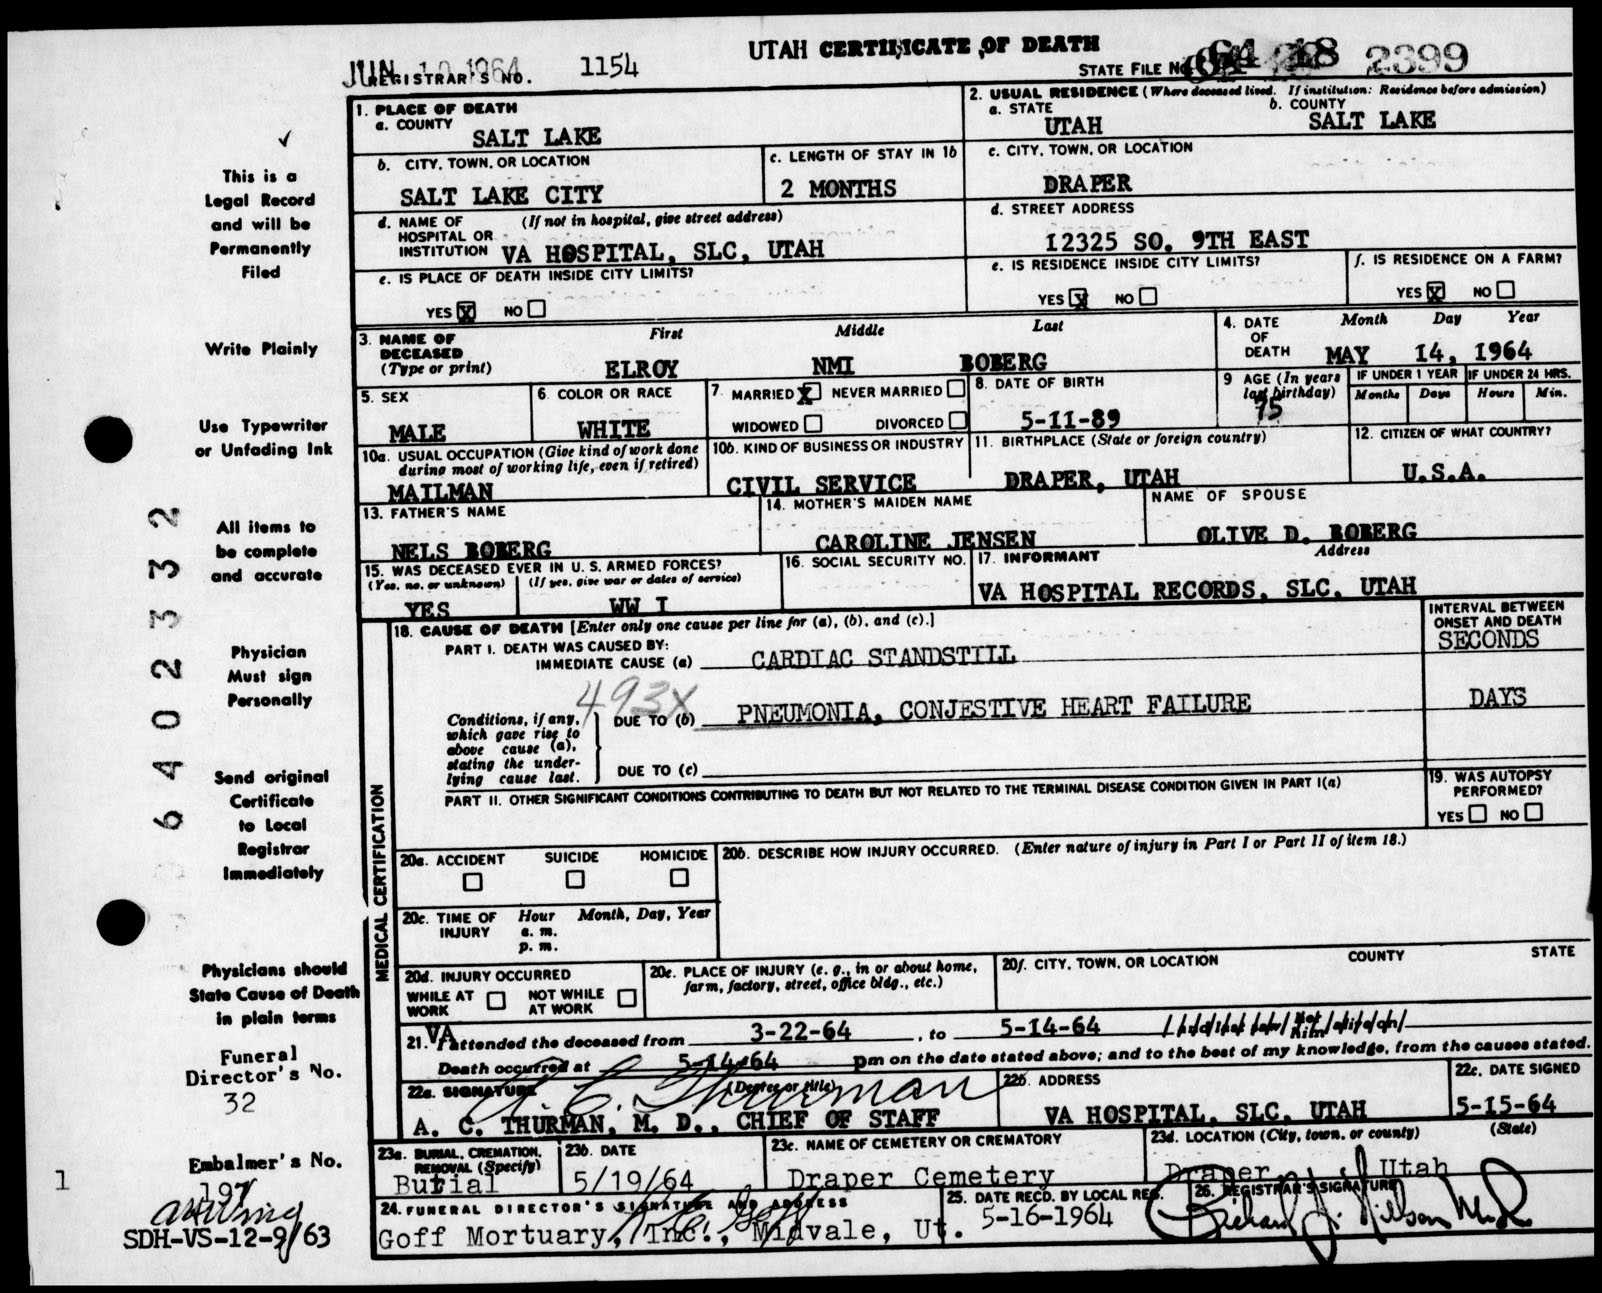 UTAH CERTIFICATE OF DEATH
JUN 10 1964
REGISTRAR'S NO. 1154
STATE FILE NO. 64 18 2399
1. PLACE OF DEATH
a. COUNTY
SALT LAKE
2. USUAL RESIDENCE (Where deceased lived. If institution: Residence before admission)
a. STATE
UTAH
b. COUNTY
SALT LAKE
b. CITY, TOWN, OR LOCATION
SALT LAKE CITY
c. LENGTH OF STAY IN 1b
2 MONTHS
c. CITY, TOWN, OR LOCATION
DRAPER
d. NAME OF HOSPITAL OR INSTITUTION (If not in hospital, give street address)
VA HOSPITAL, SLC, UTAH
d. STREET ADDRESS
12325 SO. 9TH EAST
e. IS PLACE OF DEATH INSIDE CITY LIMITS?
YES X NO
e. IS RESIDENCE INSIDE CITY LIMITS?
YES X NO
f. IS RESIDENCE ON A FARM?
YES X NO
3. NAME OF DECEASED (Type or print)
First Middle Last
ELROY NMI BOBERG
4. DATE OF DEATH
Month Day Year
MAY 14, 1964
5. SEX
MALE
6. COLOR OR RACE
WHITE
7. MARRIED X NEVER MARRIED
WIDOWED DIVORCED
8. DATE OF BIRTH
5-11-89
9 AGE (In years last birthday)
75
IF UNDER 1 YEAR
Months Days
IF UNDER 24 HRS.
Hours Min.
10a. USUAL OCCUPATION (Give kind of work done during most of working life, even if retired)
MAILMAN
10b. KIND OF BUSINESS OR INDUSTRY
CIVIL SERVICE
11. BIRTHPLACE (State or foreign country)
DRAPER, UTAH
12. CITIZEN OF WHAT COUNTRY?
U.S.A.
13. FATHER'S NAME
NELS BOBERG
14. MOTHER'S MAIDEN NAME
CAROLINE JENSEN
NAME OF SPOUSE
OLIVE D. BOBERG
15. WAS DECEASED EVER IN U. S. ARMED FORCES?
(Yes, no, or unknown) (If yes, give war or dates of service)
YES WW I
16. SOCIAL SECURITY NO.
17. INFORMANT Address
VA HOSPITAL RECORDS, SLC, UTAH
MEDICAL CERTIFICATION
18. CAUSE OF DEATH [Enter only one cause per line for (a), (b), and (c).]
INTERVAL BETWEEN ONSET AND DEATH
PART I. DEATH WAS CAUSED BY:
IMMEDIATE CAUSE (a) CARDIAC STANDSTILL
SECONDS
493X
Conditions, if any, which gave rise to above cause (a), stating the underlying cause last.
DUE TO (b) PNEUMONIA, CONJESTIVE HEART FAILURE
DAYS
DUE TO (c)
PART II. OTHER SIGNIFICANT CONDITIONS CONTRIBUTING TO DEATH BUT NOT RELATED TO THE TERMINAL DISEASE CONDITION GIVEN IN PART I(a)
19. WAS AUTOPSY PERFORMED?
YES NO
20a. ACCIDENT SUICIDE HOMICIDE
20b. DESCRIBE HOW INJURY OCCURRED. (Enter nature of injury in Part I or Part II of item 18.)
20c. TIME OF INJURY
Hour Month, Day, Year
a. m.
p. m.
20d. INJURY OCCURRED
WHILE AT WORK NOT WHILE AT WORK
20e. PLACE OF INJURY (e. g., in or about home, farm, factory, street, office bldg., etc.)
20f. CITY, TOWN, OR LOCATION COUNTY STATE
21. VA attended the deceased from 3-22-64, to 5-14-64
Death occurred at 5-14-64 pm on the date stated above; and to the best of my knowledge, from the causes stated.
22a. SIGNATURE (Degree or title)
A. C. Thurman
A. C. THURMAN, M. D., CHIEF OF STAFF
22b. ADDRESS
VA HOSPITAL, SLC, UTAH
22c. DATE SIGNED
5-15-64
23a. BURIAL, CREMATION, REMOVAL (Specify)
Burial
23b. DATE
5/19/64
23c. NAME OF CEMETERY OR CREMATORY
Draper Cemetery
23d. LOCATION (City, town, or county) (State)
Draper, Utah
24. FUNERAL DIRECTOR'S SIGNATURE AND ADDRESS
Goff Mortuary, Inc., Midvale, Ut.
25. DATE RECD. BY LOCAL REG.
5-16-1964
26. REGISTRAR'S SIGNATURE
This is a
Legal Record
and will be
Permanently
Filed
Write Plainly
Use Typewriter
or Unfading Ink
All items to
be complete
and accurate
Physician
Must sign
Personally
Send original
Certificate
to Local
Registrar
Immediately
Physicians should
State Cause of Death
in plain terms
Funeral
Director's No.
32
Embalmer's No.
197
SDH-VS-12-9/63
1
64023332